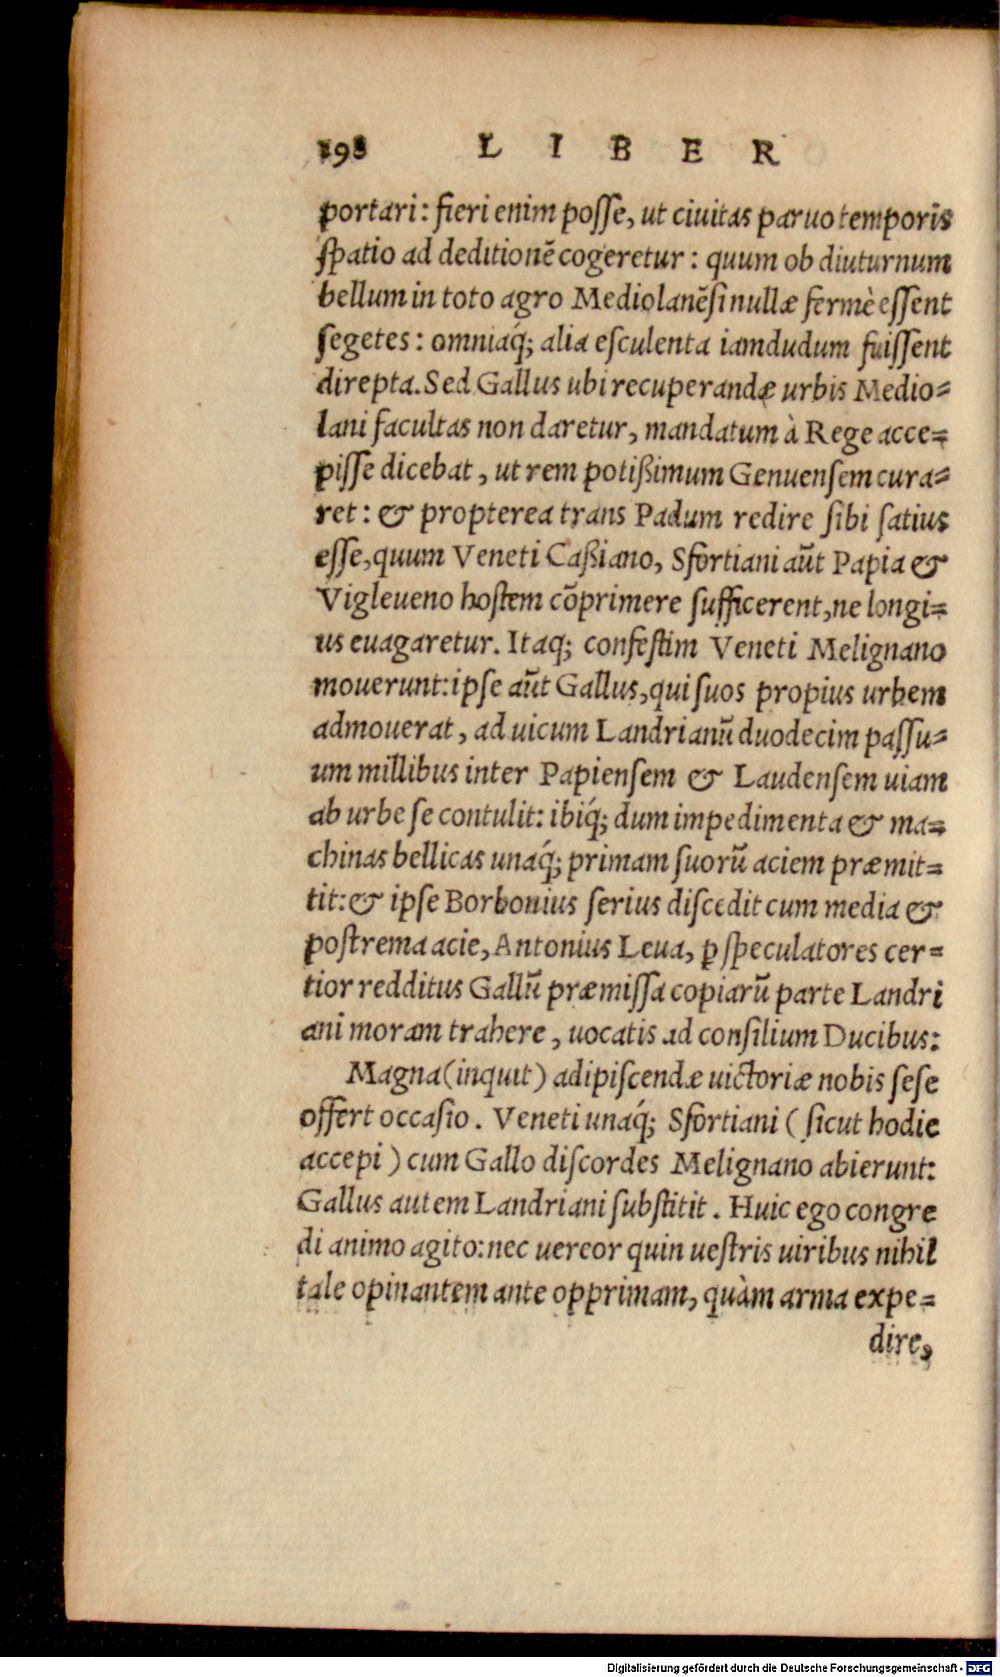 198 LIBER
portari: fieri enim posse, ut ciuitas paruo temporis
spatio ad deditionē cogeretur: quum ob diuturnum
bellum in toto agro Mediolanēsi nullæ fermè essent
segetes: omniaq́; alia esculenta iamdudum fuissent
direpta. Sed Gallus ubi recuperandæ urbis Medio-
lani facultas non daretur, mandatum à Rege acce-
pisse dicebat, ut rem potißimum Genuensem cura-
ret: & propterea trans Padum redire sibi satius
esse, quum Veneti Caßiano, Sfortiani aūt Papia &
Vigleueno hostem cōprimere sufficerent, ne longi-
us euagaretur. Itaq; confestim Veneti Melignano
mouerunt: ipse aūt Gallus, qui suos propius urbem
admouerat, ad uicum Landrianū duodecim passu-
um millibus inter Papiensem & Laudensem uiam
ab urbe se contulit: ibiq́; dum impedimenta & ma-
chinas bellicas unaq́; primam suorū aciem præmit-
tit: & ipse Borbonius serius discedit cum media &
postrema acie, Antonius Leua, ꝑ speculatores cer-
tior redditus Gallū præmissa copiarū parte Landri
ani moram trahere, uocatis ad consilium Ducibus:
Magna (inquit) adipiscendæ uictoriæ nobis sese
offert occasio. Veneti unaq́; Sfortiani (sicut hodie
accepi) cum Gallo discordes Melignano abierunt:
Gallus autem Landriani substitit. Huic ego congre
di animo agito: nec uereor quin uestris uiribus nihil
tale opinantem ante opprimam, quàm arma expe-
dire,
Digitalisierung gefördert durch die Deutsche Forschungsgemeinschaft - DFG